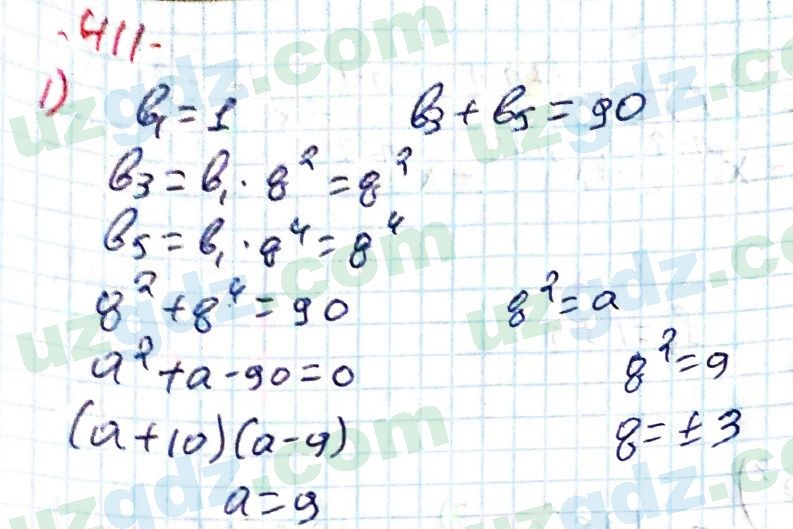 .411.
1) b₁ = 1 b₃ + b₅ = 90
b₃ = b₁ · q² = q²
b₅ = b₁ · q⁴ = q⁴
q² + q⁴ = 90 q² = a
a² + a - 90 = 0 q² = 9
(a + 10)(a - 9) q = ± 3
a = 9
uzgdz.com